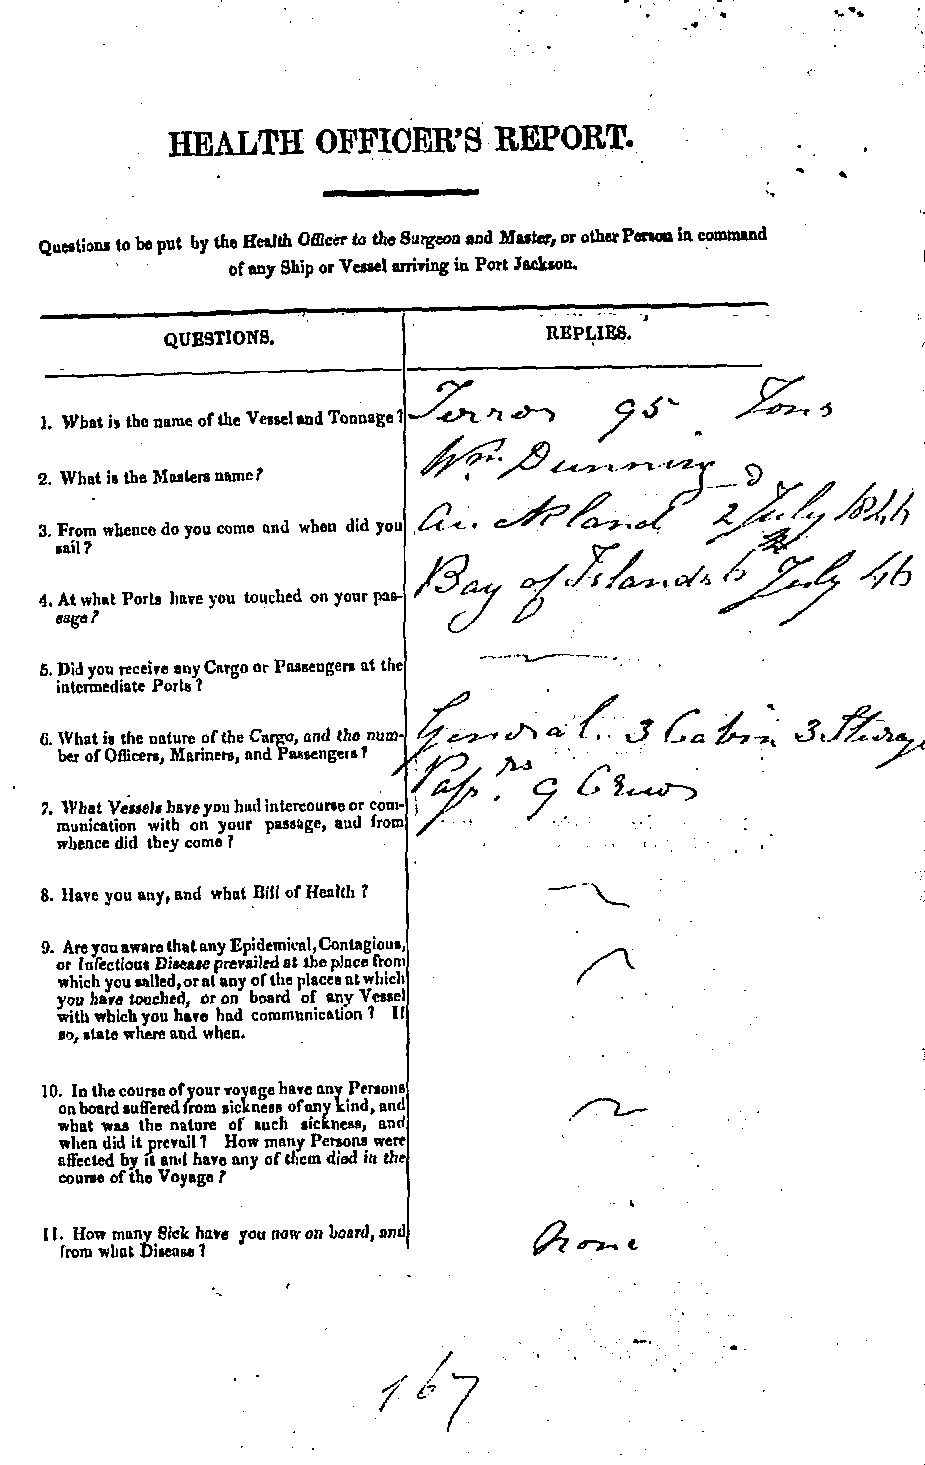 HEALTH OFFICER'S REPORT.
Questions to be put by the Health Officer to the Surgeon and Master, or other Person in command
of any Ship or Vessel arriving in Port Jackson.
QUESTIONS.
REPLIES.
1. What is the name of the Vessel and Tonnage?
Terror 95 Tons
2. What is the Masters name?
Wm. Dunning
3. From whence do you come and when did you
sail?
Auckland 2d July 1846
4. At what Ports have you touched on your pas-
sage?
Bay of Islands 6th July 46
5. Did you receive any Cargo or Passengers at the
intermediate Ports?
6. What is the nature of the Cargo, and the num-
ber of Officers, Mariners, and Passengers?
General. 3 Cabin 3 Sturage
Passrs. 9 Crew
7. What Vessels have you had intercourse or com-
munication with on your passage, and from
whence did they come?
8. Have you any, and what Bill of Health?
9. Are you aware that any Epidemical, Contagious,
or Infectious Disease prevailed at the place from
which you sailed, or at any of the places at which
you have touched, or on board of any Vessel
with which you have had communication? If
so, state where and when.
10. In the course of your voyage have any Persons
on board suffered from sickness of any kind, and
what was the nature of such sickness, and
when did it prevail? How many Persons were
affected by it and have any of them died in the
course of the Voyage?
11. How many Sick have you now on board, and
from what Disease?
None
167